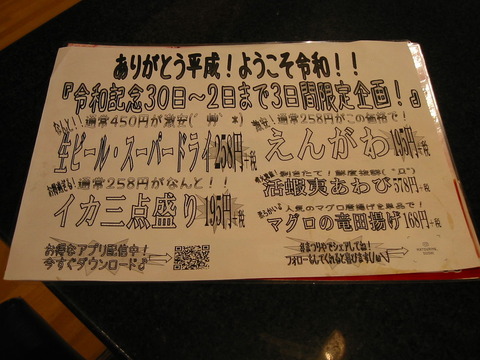 ありがとう平成!ようこそ令和!!
『令和記念30日〜2日まで3日間限定企画!』
通常450円が激安(*´艸`*)
生ビール・スーパードライ258円+税
通常258円がこの価格で!
えんがわ195円+税
通常258円がなんと!!
イカ三点盛り195円+税
剥きたて!鮮度抜群
活蝦夷あわび578円+税
人気のマグロ唐揚げを単品で!
マグロの竜田揚げ168円+税
お得なアプリ配信中!
今すぐダウンロード♪
フォローもしてくれると喜びます